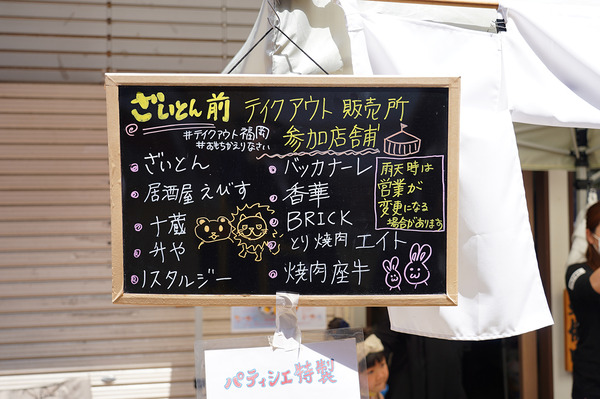 ざいとん前 テイクアウト 販売所
#テイクアウト福岡
#おもちかえりなさい
参加店舗
・ざいとん
・居酒屋えびす
・十蔵
・弁や
・ノスタルジー
・バッカナーレ
・香華
・BRICK
・とり焼肉エイト
・焼肉座牛
雨天時は
営業が
変更になる
場合があります
パティシエ特製